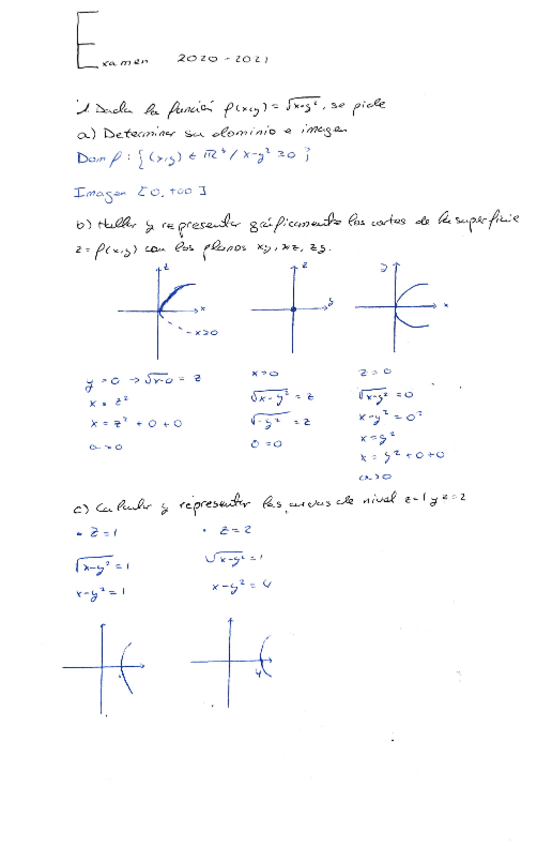 Examen 2020-2021
1. Dada la función f(x,y) = √x-y², se pide
a) Determinar su dominio e imagen
Dom f: {(x,y) ∈ R² / x-y² ≥0}
Imagen [0, +∞]
b) Hallar y representar gráficamente los cortes de la superficie
z = f(x,y) con los planos xy, xz, zy.
z x x>0
z y
y x
y = 0 → √x-0 = z
x = z²
x = z² + 0 + 0
a>0
x=0
√x-y² = z
√-y² = z
0 = 0
z = 0
√x-y² = 0
x-y² = 0²
x = y²
x = y² + 0 + 0
a>0
c) Calcular y representar las curvas de nivel z=1 y z=2
• z=1
√x-y² = 1
x-y² = 1
• z=2
√x-y² = 1
x-y² = 4
4